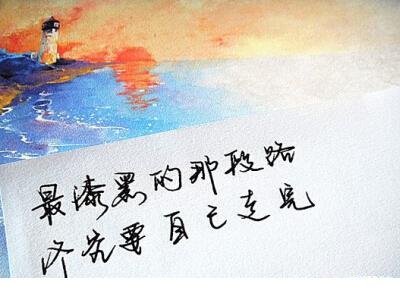 最漆黑的那段路
终究要自己走完